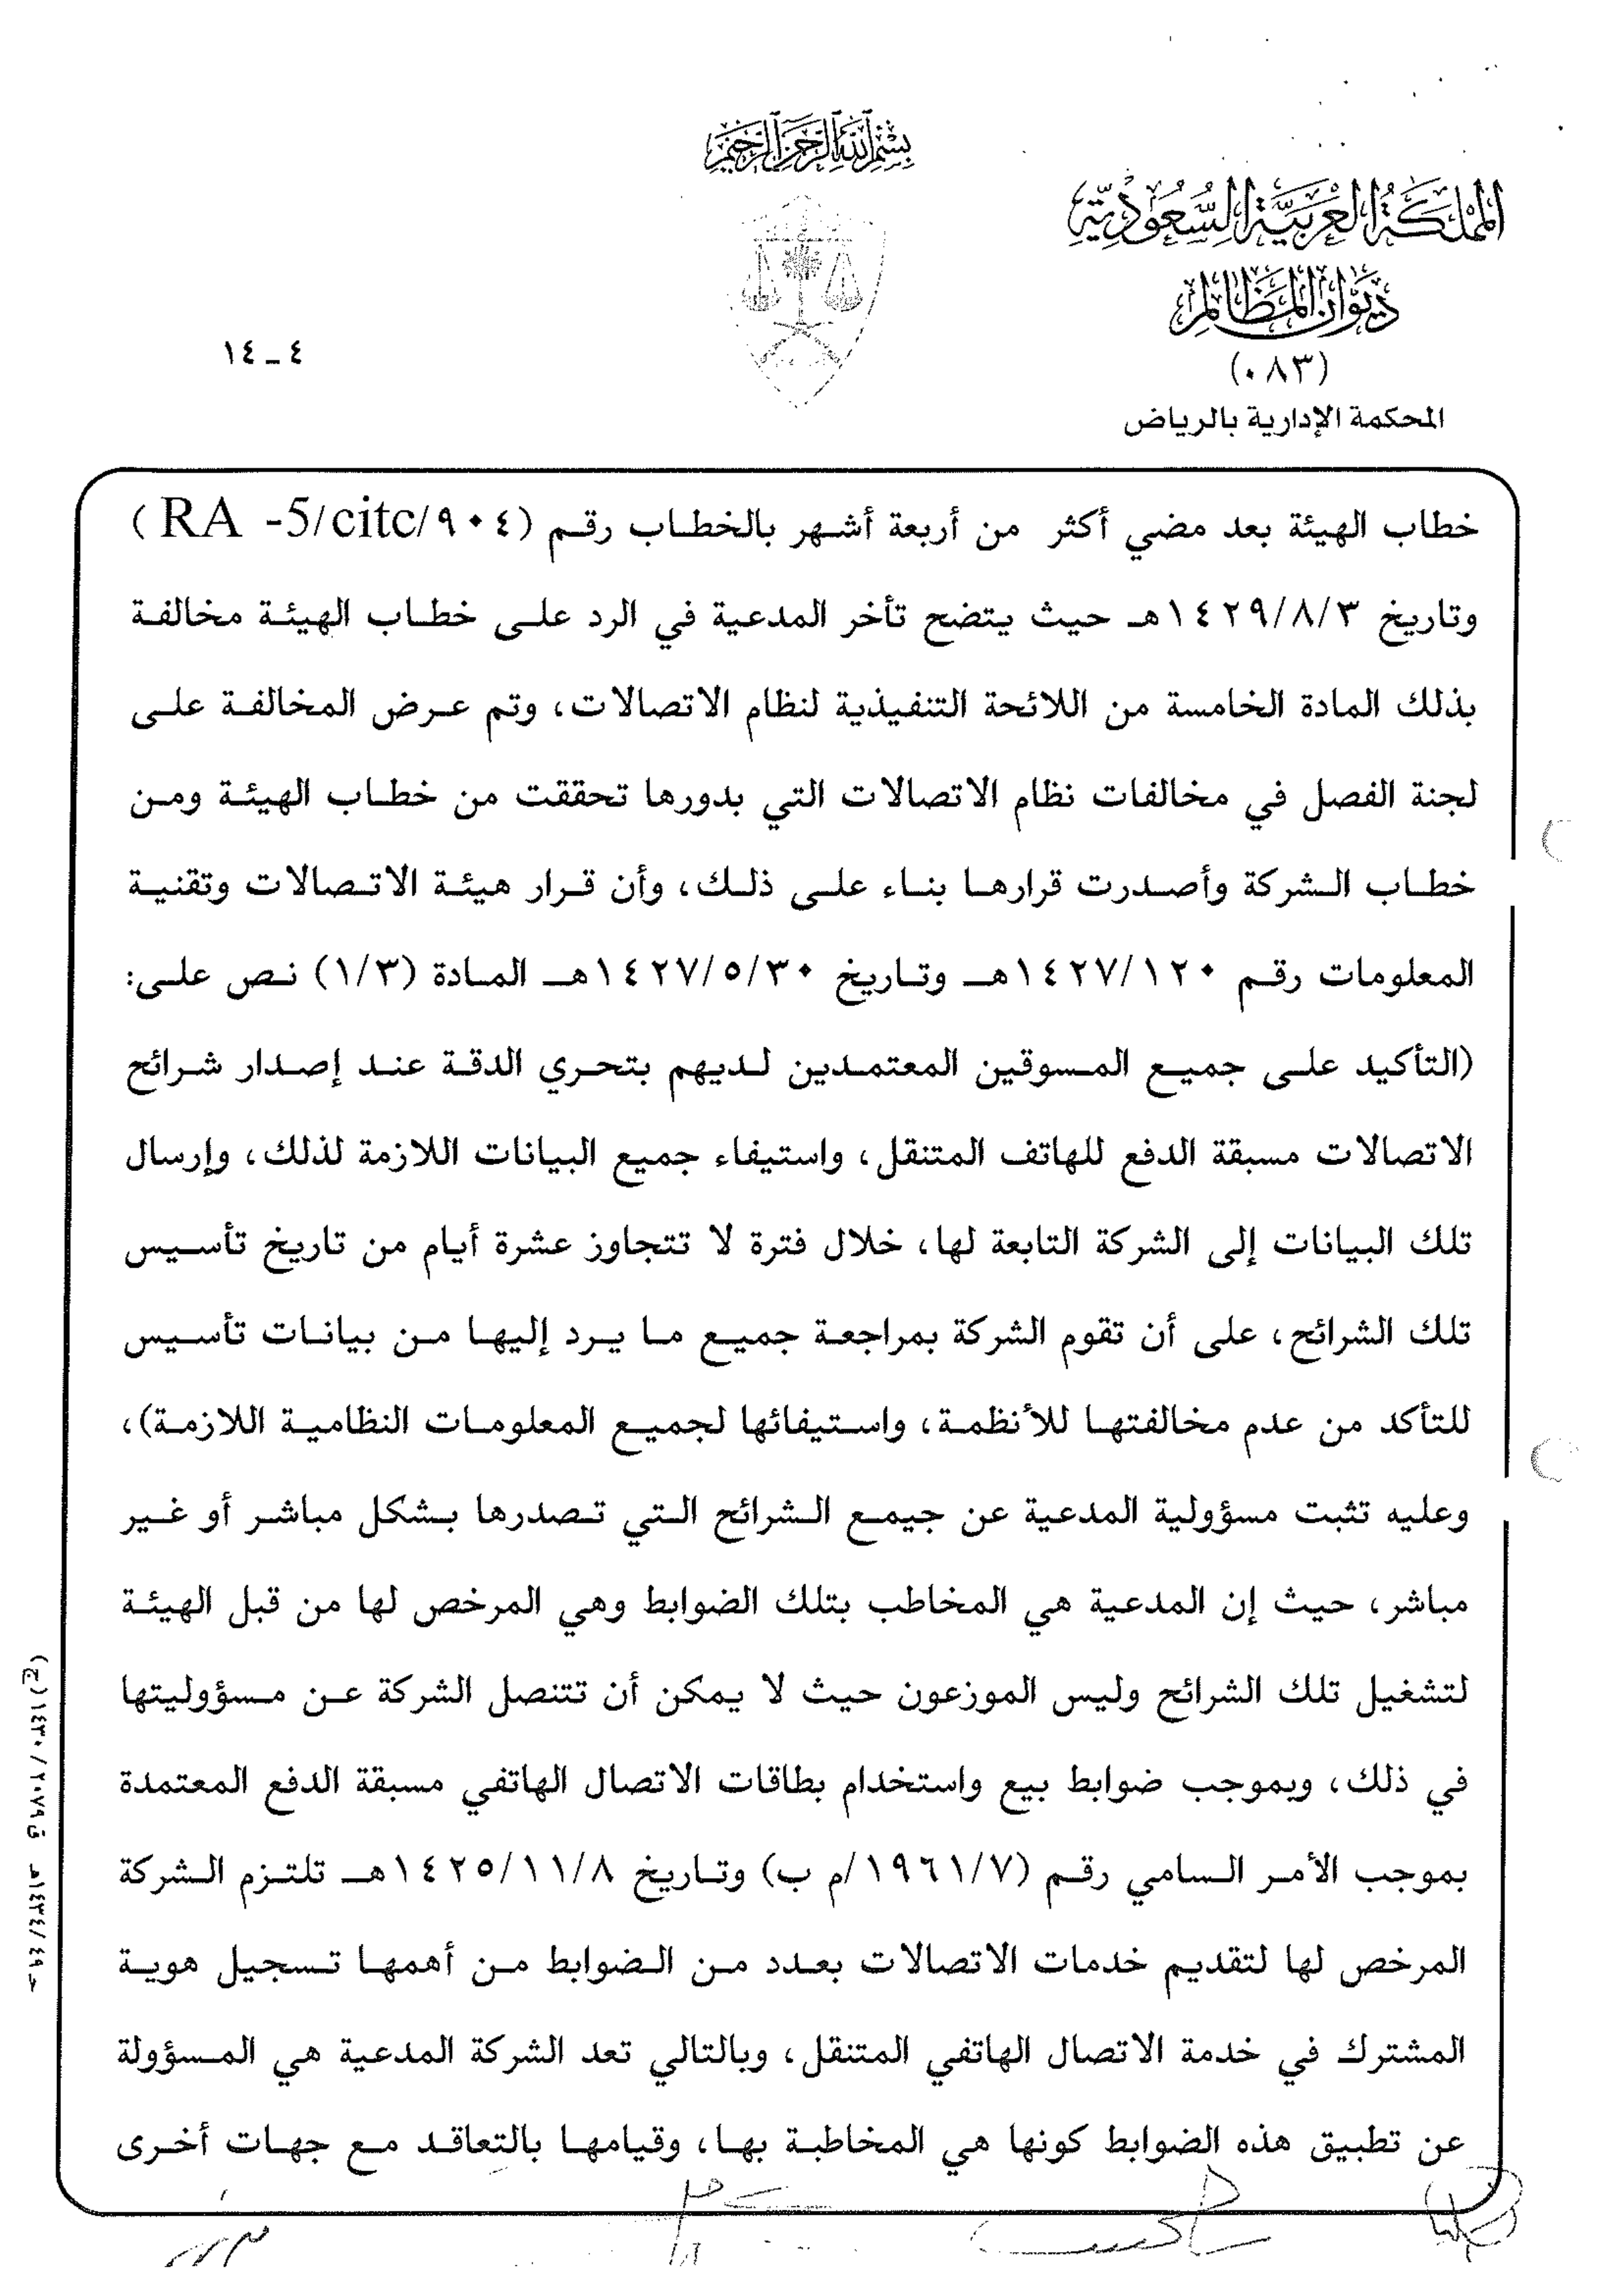 بسم الله الرحمن الرحيم
المملكة العربية السعودية
ديوان المظالم
(٠٨٣)
المحكمة الإدارية بالرياض
٤ ـ ١٤
خطاب الهيئة بعد مضي أكثر من أربعة أشهر بالخطاب رقم (٩٠٤/RA -5/citc)
وتاريخ ١٤٢٩/٨/٣هـ حيث يتضح تأخر المدعية في الرد على خطاب الهيئة مخالفة
بذلك المادة الخامسة من اللائحة التنفيذية لنظام الاتصالات، وتم عرض المخالفة على
لجنة الفصل في مخالفات نظام الاتصالات التي بدورها تحققت من خطاب الهيئة ومن
خطاب الشركة وأصدرت قرارها بناء على ذلك، وأن قرار هيئة الاتصالات وتقنية
المعلومات رقم ١٤٢٧/١٢٠هـ وتاريخ ١٤٢٧/٥/٣٠هـ المادة (١/٣) نص على:
(التأكيد على جميع المسوقين المعتمدين لديهم بتحري الدقة عند إصدار شرائح
الاتصالات مسبقة الدفع للهاتف المتنقل، واستيفاء جميع البيانات اللازمة لذلك، وإرسال
تلك البيانات إلى الشركة التابعة لها، خلال فترة لا تتجاوز عشرة أيام من تاريخ تأسيس
تلك الشرائح، على أن تقوم الشركة بمراجعة جميع ما يرد إليها من بيانات تأسيس
للتأكد من عدم مخالفتها للأنظمة، واستيفائها لجميع المعلومات النظامية اللازمة)،
وعليه تثبت مسؤولية المدعية عن جيمع الشرائح التي تصدرها بشكل مباشر أو غير
مباشر، حيث إن المدعية هي المخاطب بتلك الضوابط وهي المرخص لها من قبل الهيئة
لتشغيل تلك الشرائح وليس الموزعون حيث لا يمكن أن تتنصل الشركة عن مسؤوليتها
في ذلك، وبموجب ضوابط بيع واستخدام بطاقات الاتصال الهاتفي مسبقة الدفع المعتمدة
بموجب الأمر السامي رقم (١٩٦١/٧/م ب) وتاريخ ١٤٢٥/١١/٨هـ تلتزم الشركة
المرخص لها لتقديم خدمات الاتصالات بعدد من الضوابط من أهمها تسجيل هوية
المشترك في خدمة الاتصال الهاتفي المتنقل، وبالتالي تعد الشركة المدعية هي المسؤولة
عن تطبيق هذه الضوابط كونها هي المخاطبة بها، وقيامها بالتعاقد مع جهات أخرى